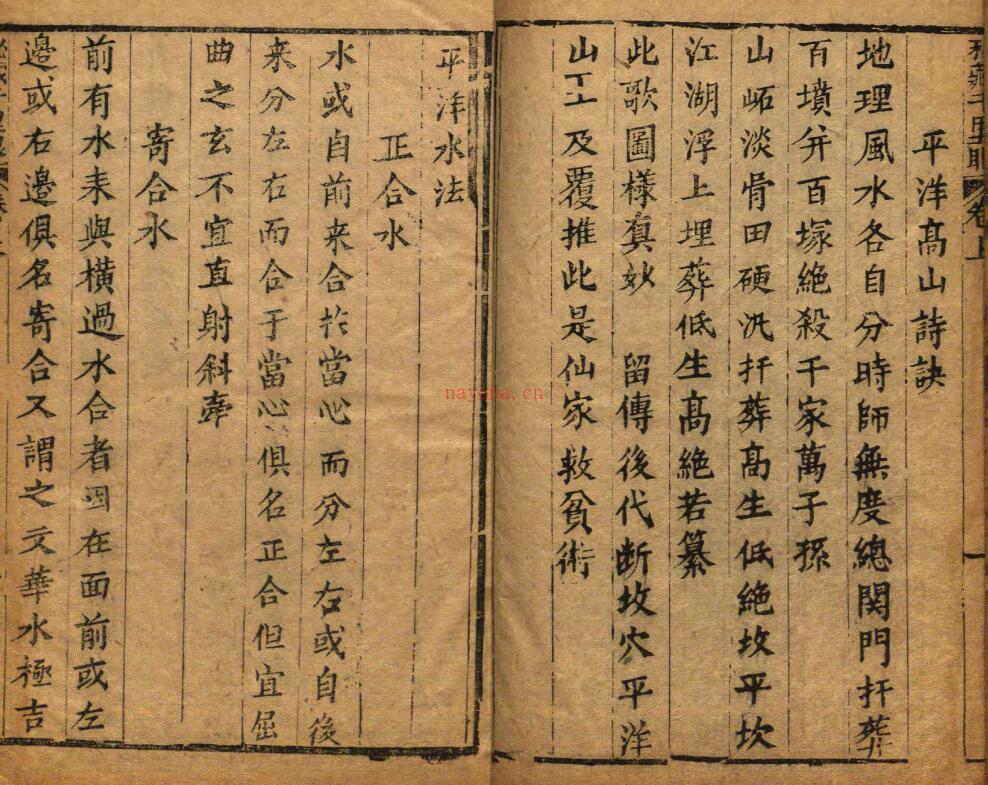 平洋髙山詩訣
地理風水各自分時師無度總関門扞葬
百墳弁百塚絶殺千家萬子孫
山㟉淡骨田硬汎扞葬髙生低絶坟平坎
江湖浮上埋葬低生髙絶若纂
此歌圖樣真妙 留傳後代断坟穴平洋
山丁工及覆推此是仙家救貧術
卷上
一
平洋水法
正合水
水或自前来合扵當心而分左右或自後
来分左右而合于當心俱名正合但宜屈
曲之玄不宜直射斜牽
寄合水
前有水耒與橫過水合者因在面前或左
邉或右邉俱名寄合又謂之文華水極吉
nayona.cn